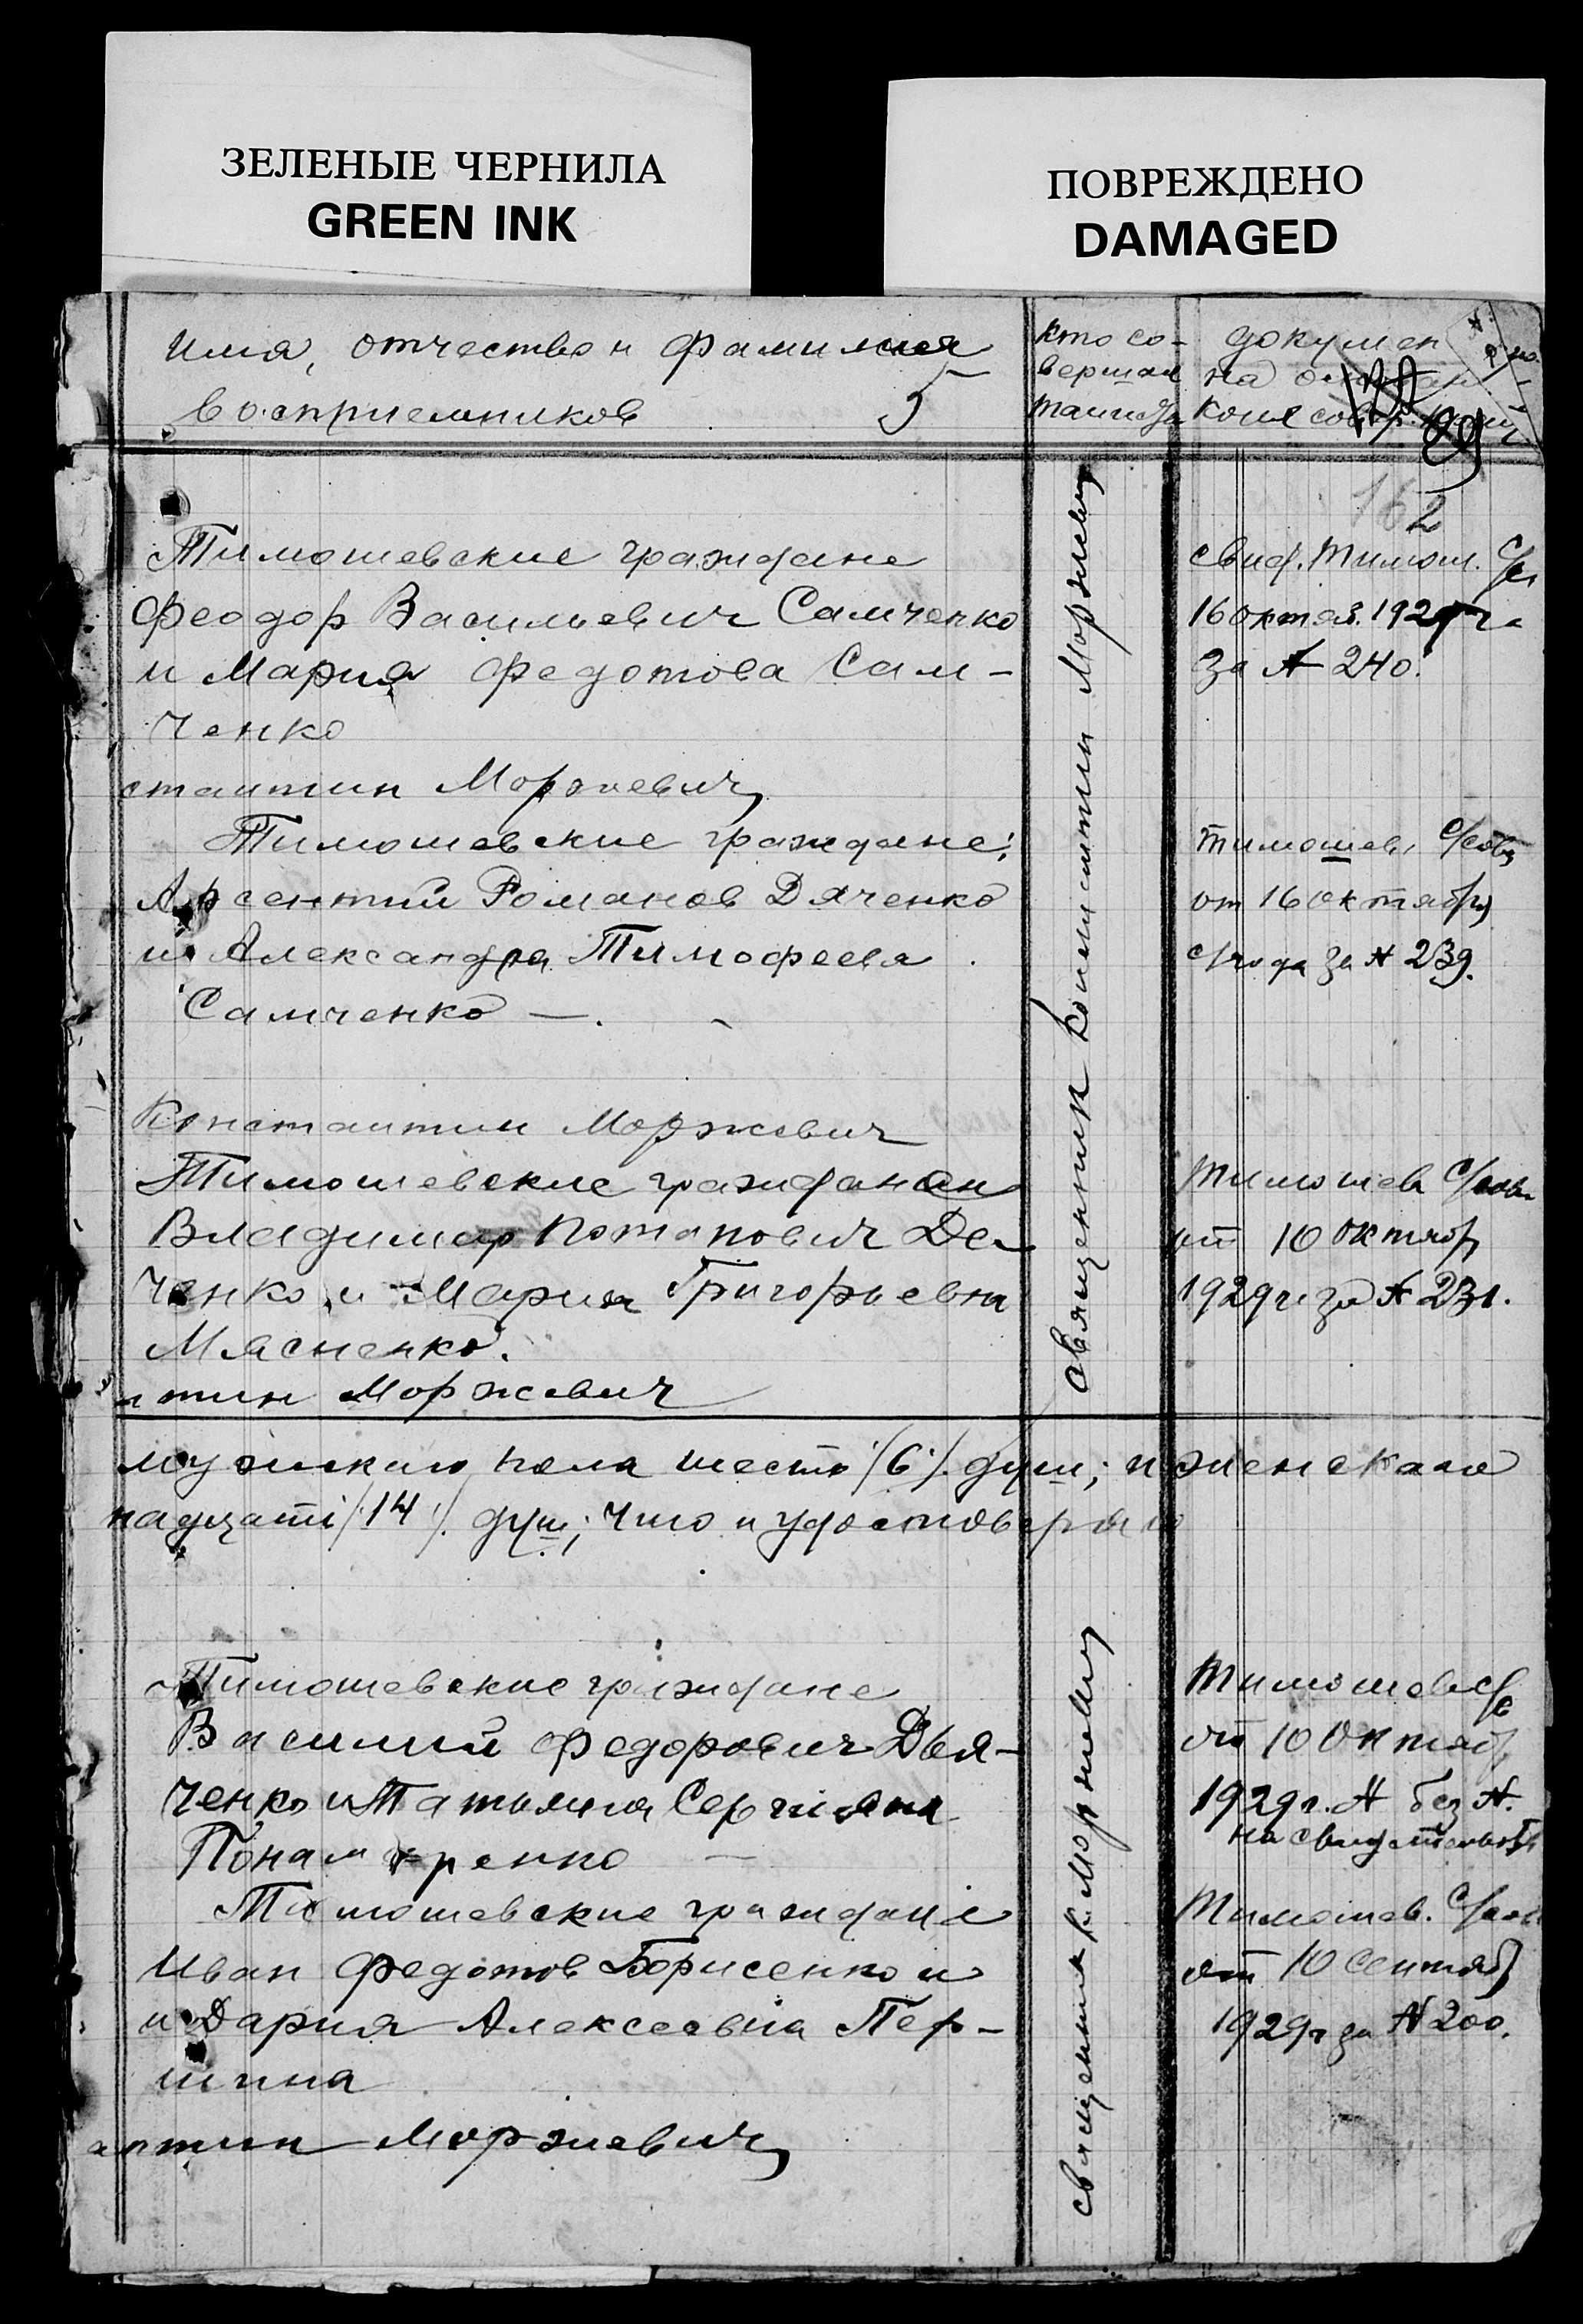 ЗЕЛЕНЫЕ ЧЕРНИЛА
GREEN INK
ПОВРЕЖДЕНО
DAMAGED
Имя, отчество и фамилия
восприемников
5
кто со-
вершал
таинства
докумен
на
коих совер.
162
Тимошевские граждане
Феодор Васильевич Самченко
и Мария Федотова Сам-
ченко
стантин Моржевич
свид. Тимош. С/
16 октяб. 1929 г.
за № 240.
Тимошевские граждане:
Арсентий Романов Дяченко
и Александра Тимофеева
Самченко —.
Тимошев. С/сов
от 16 октября
с/года за № 239.
Константин Моржевич
Тимошевские граждан
Владимир Потапович Де-
ченко и Мария Григорьевна
Мясненко.
нтин Моржевич
Тимошев С/сов
от 10 октяб
1929 г. за № 231.
Священник Константин Моржевич
мужского пола шесть /6/. душ; и женскаго
надцать /14/. душ; что и удостоверяю
Тимошевские граждане
Василий Федорович Дья-
ченко и Татьяна
Тимошев с/с
от 10 Октяб
1929 г. № без №.
на свидетельств
Тимошевские граждане
Иван Федотов Борисенко и
и Дария Алексеевна Пер-
шина
антин Моржевич
Тимошев. С/сов
от 10 Сентяб
1929 г за № 200.
священник К. Моржевич